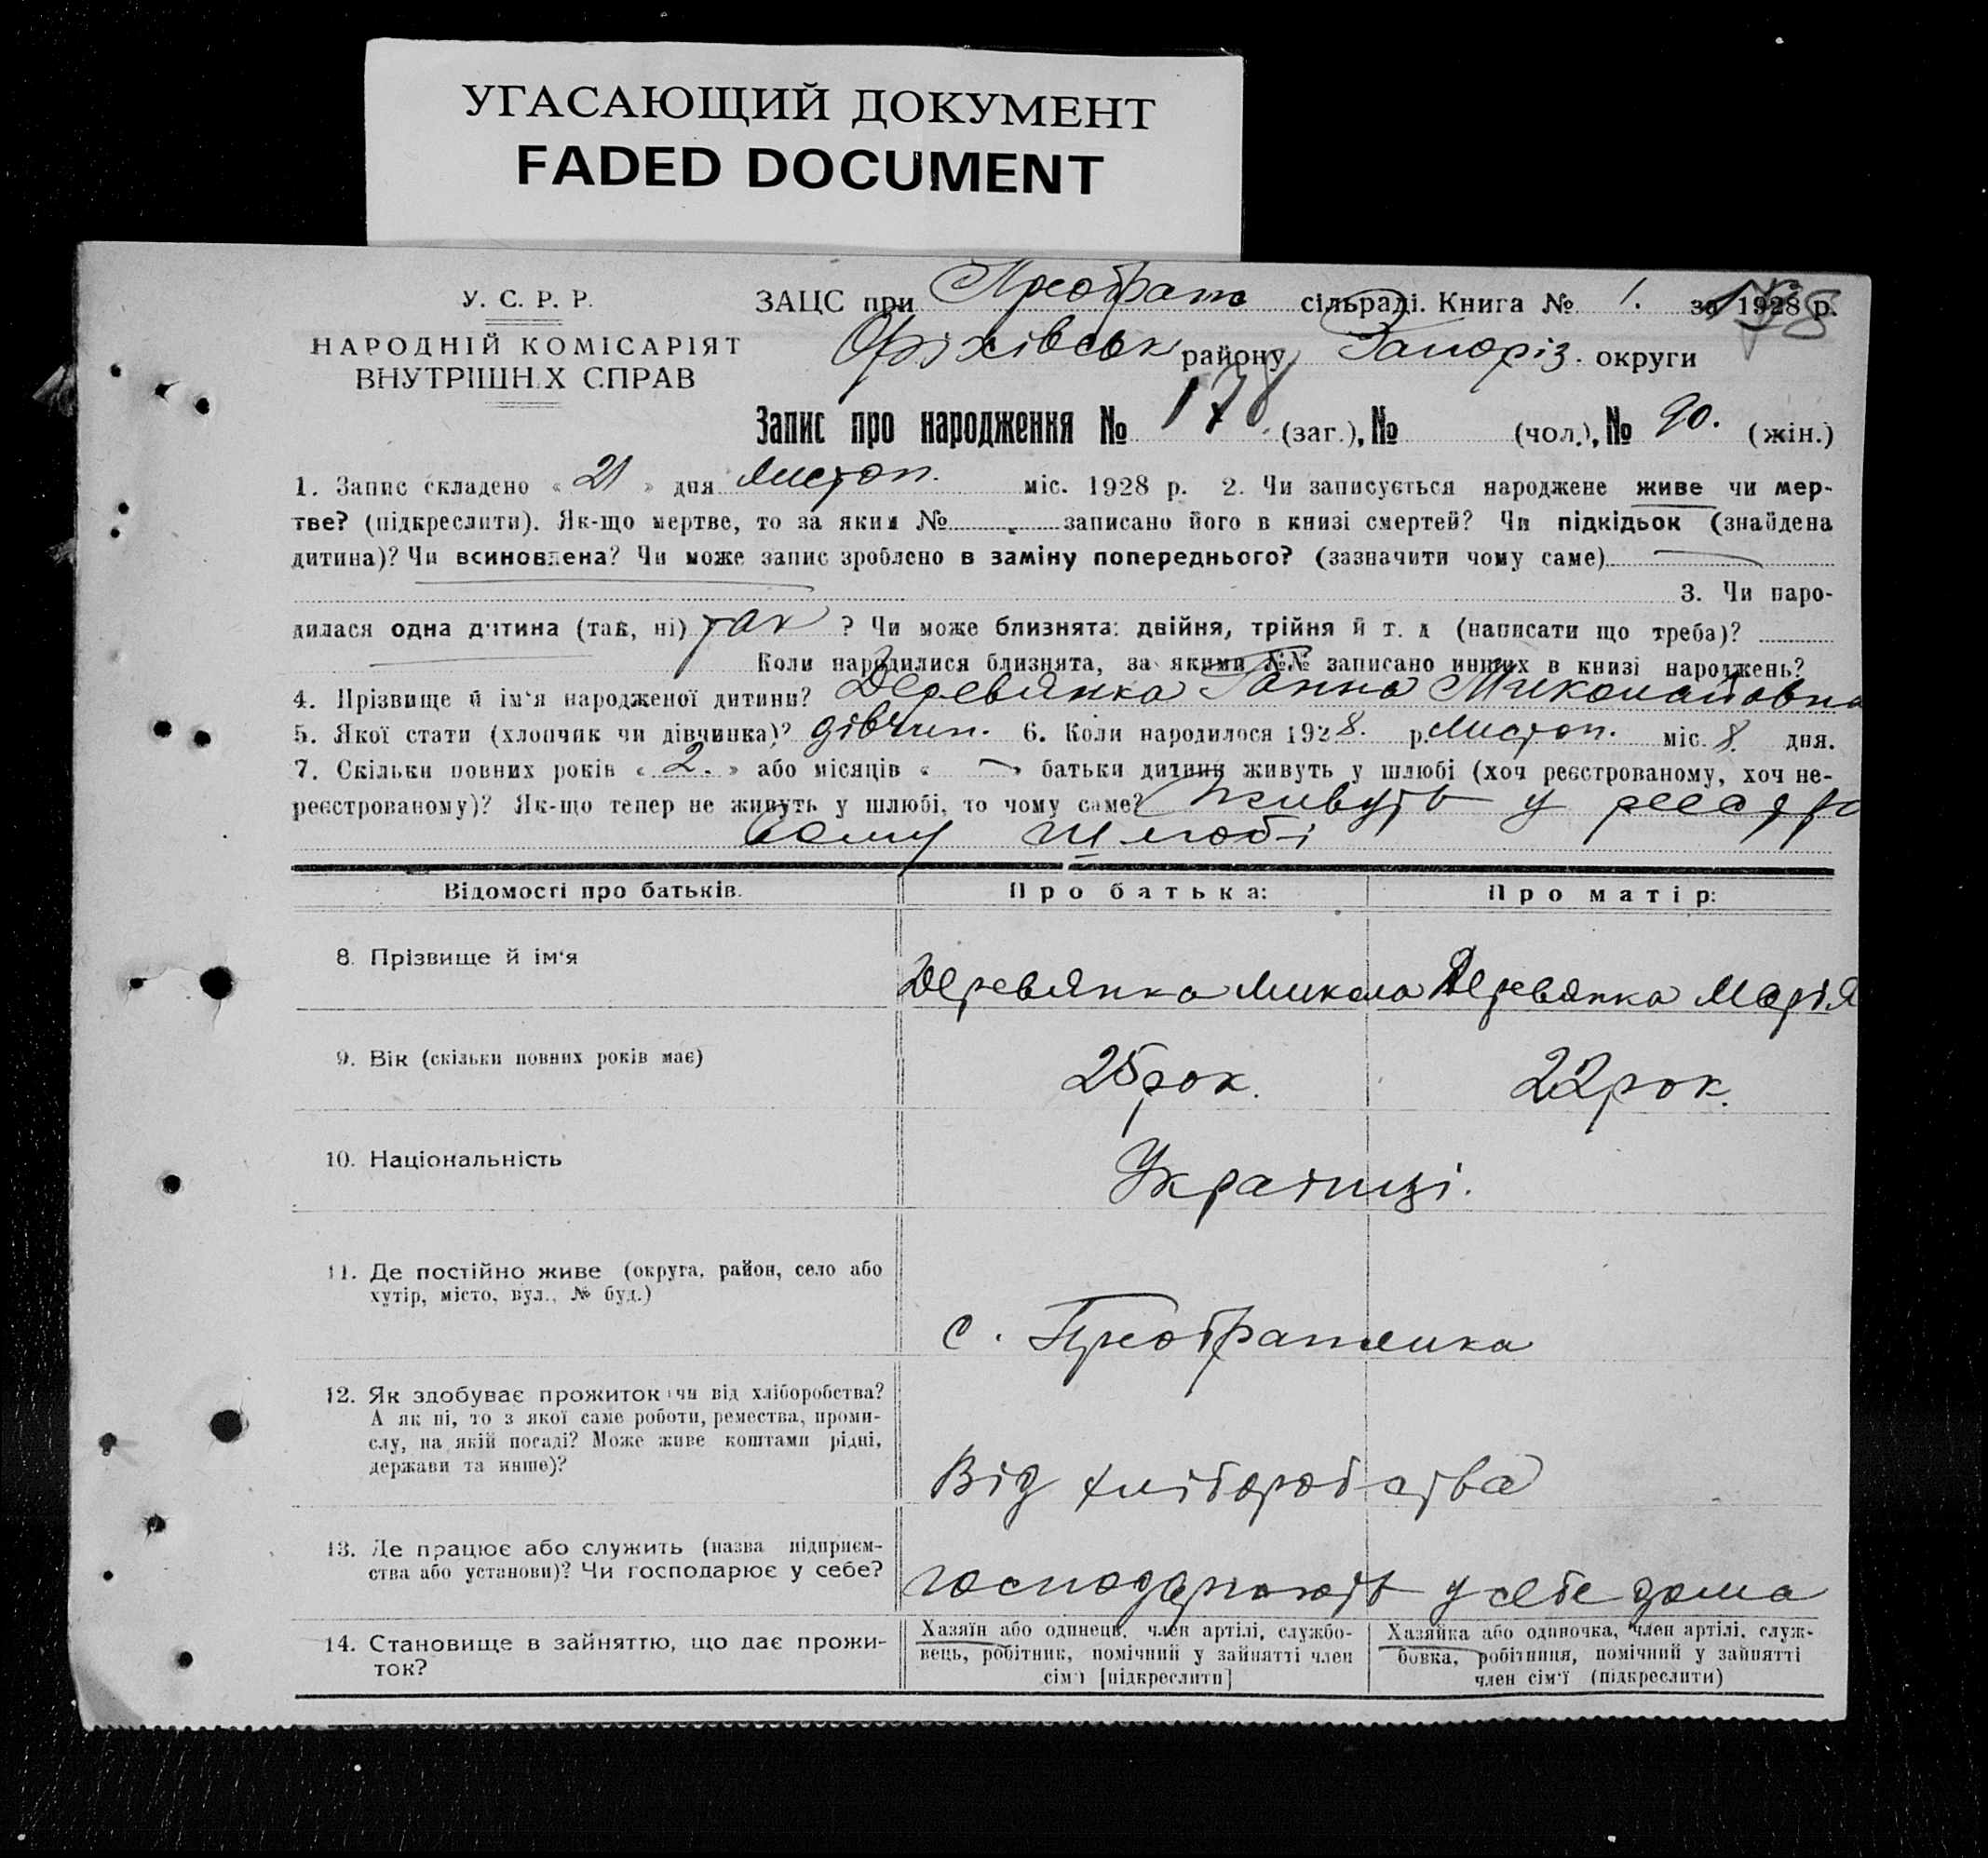 УГАСАЮЩИЙ ДОКУМЕНТ
FADED DOCUMENT
У. С. Р. Р.
НАРОДНІЙ КОМІСАРІЯТ
ВНУТРІШН.Х СПРАВ
ЗАЦС при Преображ сільраді. Книга № 1. за 1928 р.
Оріхівськ району Запоріз. округи
Запис про народження № 178 (заг.), № (чол.), № 90. (жін.)
1. Запис складено « 21 » дня листоп. міс. 1928 р. 2. Чи записується народжене живе чи мер-
тве? (підкреслити). Як-що мертве, то за яким № записано його в книзі смертей? Чи підкідьок (знайдена
дитина)? Чи всиновлена? Чи може запис зроблено в заміну попереднього? (зазначити чому саме)
3. Чи наро-
дилася одна дитина (так, ні) так ? Чи може близнята: двійня, трійня й т. д (написати що треба)?
Коли народилися близнята, за якими №№ записано инших в книзі народжень?
4. Прізвище й ім'я народженої дитини? Деревянка Ганна Миколаївна
5. Якої стати (хлопчик чи дівчинка)? дівчин. 6. Коли народилося 1928. р. листоп. міс. 8. дня.
7. Скільки повних років « 2. » або місяців « – » батьки дитини живуть у шлюбі (хоч реєстрованому, хоч не-
реєстрованому)? Як-що тепер не живуть у шлюбі, то чому саме? живуть у реєстро
ваму шлюбі
Відомості про батьків. Про батька: Про матір:
8. Прізвище й ім'я Деревянка Микола Деревянка Марія
9. Вік (скільки повних років має) 25 рок. 22 рок.
10. Національність Українці.
11. Де постійно живе (округа, район, село або
хутір, місто, вул., № буд.)
с. Преображенка
12. Як здобуває прожиток (чи від хліборобства?
А як ні, то з якої саме роботи, ремества, проми-
слу, на якій посаді? Може живе коштами рідні,
держави та инше)?
Від хліборобства
13. Де працює або служить (назва підприєм-
ства або установи)? Чи господарює у себе?
господарюють у себе дома
14. Становище в зайняттю, що дає прожи-
ток?
Хазяїн або одинець, член артілі, службо-
вець, робітник, помічний у зайнятті член
сім'ї [підкреслити]
Хазяйка або одиночка, член артілі, служ-
бовка, робітниця, помічний у зайнятті
член сім'ї (підкреслити)